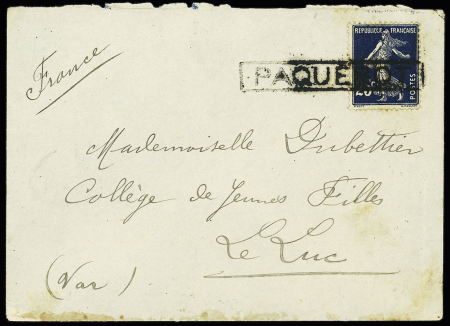 France
REPUBLIQUE FRANÇAISE
PAQUEBOT
POSTES
Mademoiselle Dubettier
Collège de Jeunes Filles
Le Luc
(Var)